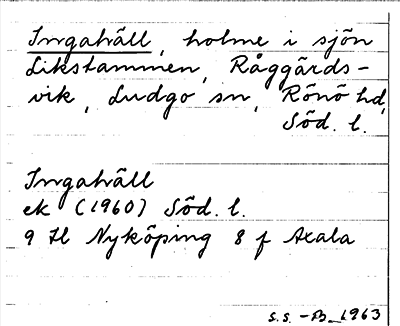 Ingahäll, holme i sjön
Likstammen, Råggårds-
vik, Ludgo sn, Rönö hd,
Söd. l.
Ingahäll
ek (1960) Söd. l.
9 H Nyköping 8 f Axala
S.S. -B_1963